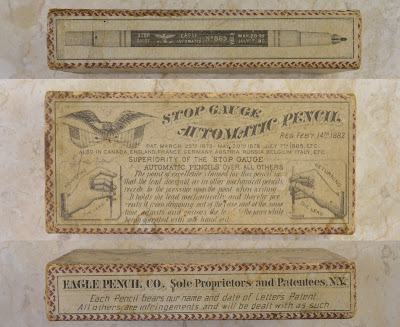 STOP GAUGE
EAGLE AUTOMATIC
STOP GAUGE
AUTOMATIC PENCIL.
REG. FEB'Y 14TH 1882
PAT. MARCH 25TH 1879 MAY 20TH 1879 JULY 7TH 1885, ETC.
ALSO IN CANADA, ENGLAND, FRANCE, GERMANY, AUSTRIA, RUSSIA, BELGIUM, ITALY, ETC.
SUPERIORITY OF THE STOP GAUGE
AUTOMATIC PENCILS OVER ALL OTHERS
The point of excellence claimed for this pencil is,
that the lead does not as in other mechanical pencils
recede by the pressure upon the point when writing.
It holds the lead mechanically and thereby pre-
vents it from dropping out of the case and at the same
time adjusts and gauges the
LEAD
EAGLE PENCIL CO., Sole Proprietors and Patentees, N.Y.
Each Pencil bears our name and date of Letters Patent.
All others are infringements and will be dealt with as such.